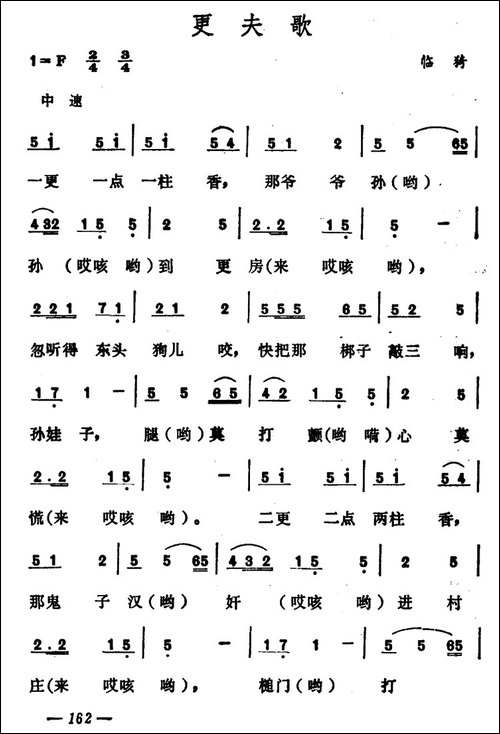 更夫歌
1=F 2/4 3/4 临猗
中速
5i 5i | 5i 5i | 5i 54 | 51 2 | 5 5 65 |
一更 一点 一柱 香， 那爷 爷 孙(哟)
432 15 5 | 2 5 | 2.2 15 | 5 － |
孙 (哎咳 哟)到 更 房(来 哎咳 哟)，
221 71 | 21 2 | 555 65 | 52 5 |
忽听得 东头 狗儿 咬，快把那 梆子 敲三 响，
17 1 － | 5 5 65 | 42 15 5 | 2 5 |
孙娃 子， 腿(哟)莫 打 颤(哟 嗬)心 莫
2.2 15 | 5 － | 5i 5i | 5i 54 |
慌(来 哎咳 哟)。 二更 二点 两柱 香，
51 2 | 5 5 65 | 432 15 5 | 2 5 |
那鬼 子 汉(哟) 奸 (哎咳 哟)进 村
2.2 15 | 5 － | 17 1 － | 5 5 65 |
庄(来 哎咳 哟)， 槌门(哟) 打
— 162 —